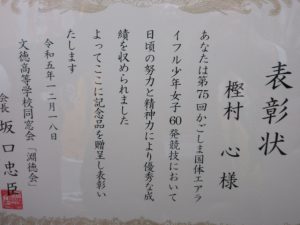 表彰状
樫村 心 様
あなたは第75回かごしま国体エアラ
イフル少年女子60発競技において
日頃の努力と精神力により優秀な成
績を収められました
よってここに記念品を贈呈し表彰い
たします
令和五年一二月一八日
文徳高等学校同窓会「淵徳会」
会長 坂口忠臣